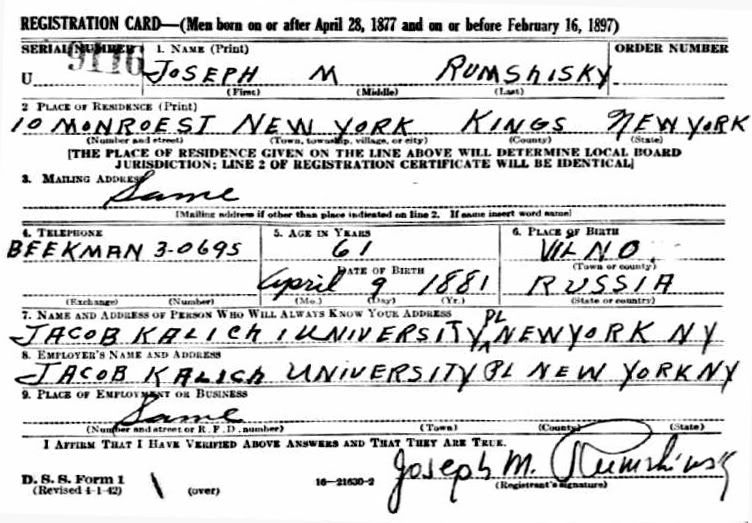 REGISTRATION CARD—(Men born on or after April 28, 1877 and on or before February 16, 1897)
SERIAL NUMBER 1. NAME (Print) ORDER NUMBER
U JOSEPH M RUMSHISKY
(First) (Middle) (Last)
2 PLACE OF RESIDENCE (Print)
10 MONROE ST NEW YORK KINGS NEW YORK
(Number and street) (Town, township, village, or city) (County) (State)
[THE PLACE OF RESIDENCE GIVEN ON THE LINE ABOVE WILL DETERMINE LOCAL BOARD
JURISDICTION; LINE 2 OF REGISTRATION CERTIFICATE WILL BE IDENTICAL]
3. MAILING ADDRESS
Same
[Mailing address if other than place indicated on line 2. If same insert word same]
4. TELEPHONE 5. AGE IN YEARS 6. PLACE OF BIRTH
BEEKMAN 3-0695 61 VILNO
(Town or county)
DATE OF BIRTH
April 9 1881 RUSSIA
(Exchange) (Number) (Mo.) (Day) (Yr.) (State or country)
7. NAME AND ADDRESS OF PERSON WHO WILL ALWAYS KNOW YOUR ADDRESS
JACOB KALICH 1 UNIVERSITY PL NEW YORK NY
8. EMPLOYER'S NAME AND ADDRESS
JACOB KALICH UNIVERSITY PL NEW YORK NY
9. PLACE OF EMPLOYMENT OR BUSINESS
Same
(Number and street or R. F. D. number) (Town) (County) (State)
I AFFIRM THAT I HAVE VERIFIED ABOVE ANSWERS AND THAT THEY ARE TRUE.
Joseph M. Rumshinsky
D. S. S. Form 1
(Revised 4-1-42) (over) 16—21630-2 (Registrant's signature)